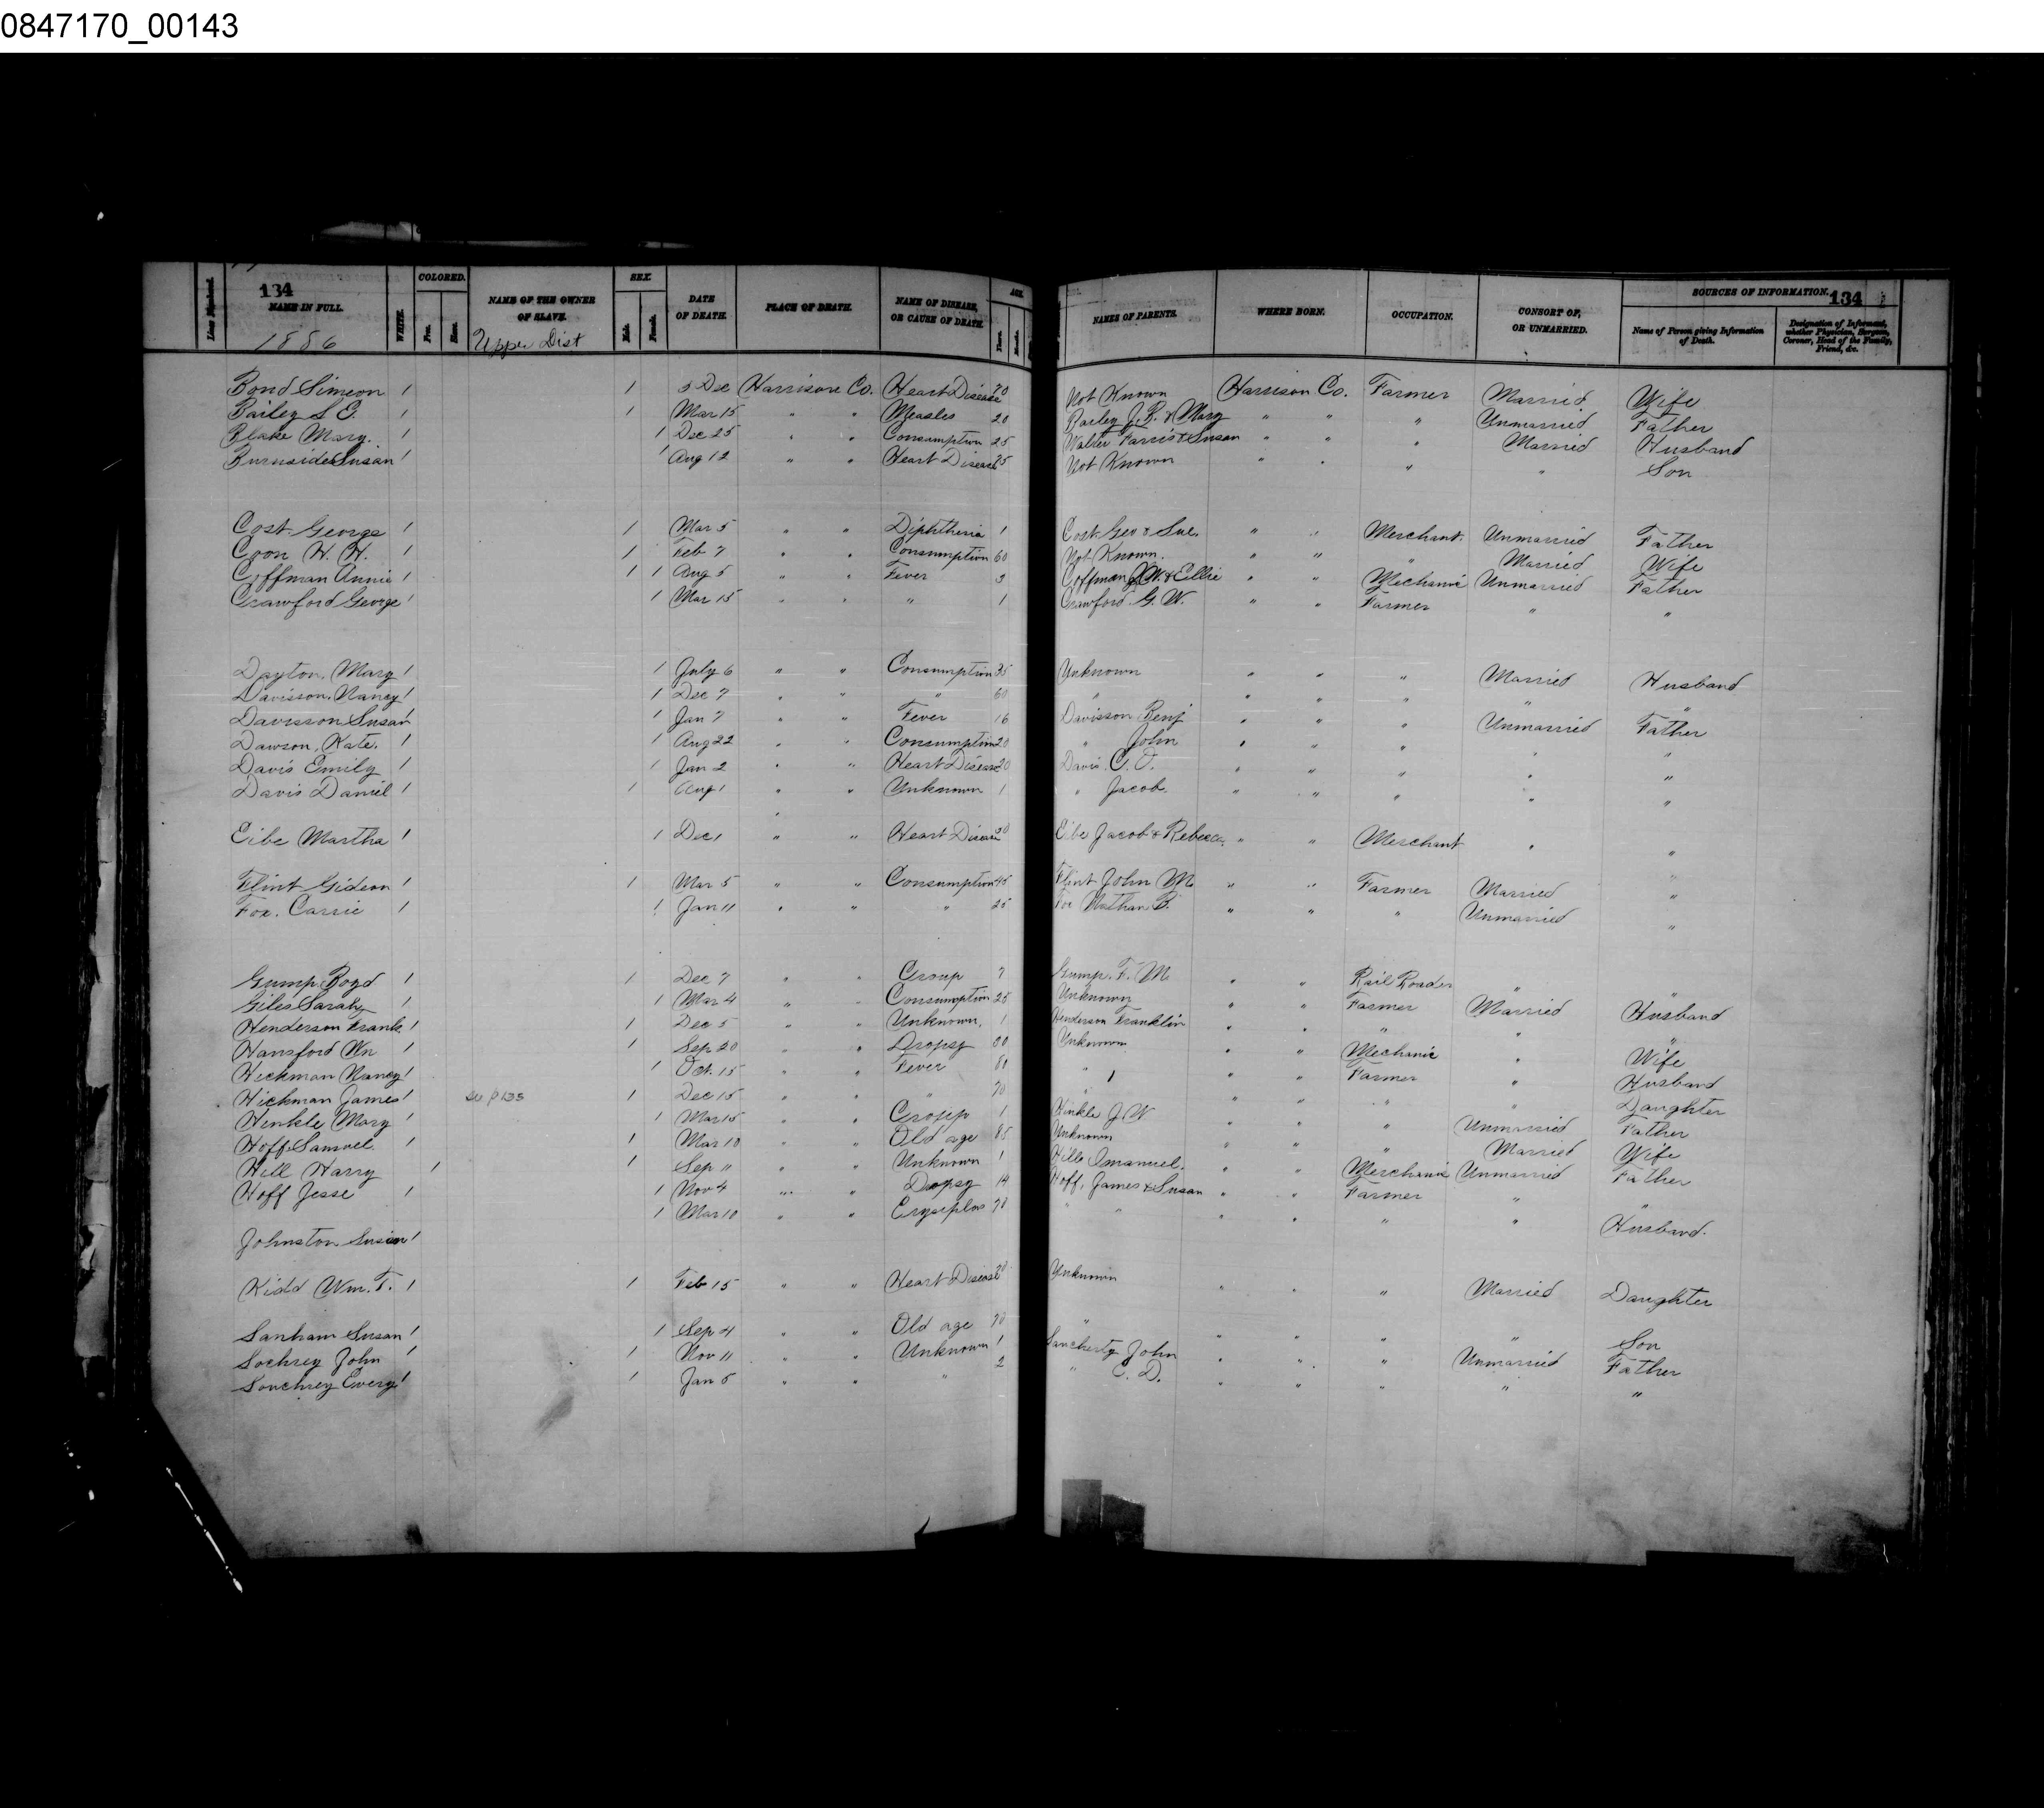 0847170_00143
134
Long Numbered. NAME IN FULL. WHITE. COLORED. Free. Slave. NAME OF THE OWNER OF SLAVE. SEX. Male. Female. DATE OF DEATH. PLACE OF DEATH. NAME OF DISEASE, OR CAUSE OF DEATH. AGE. Years. Months. NAMES OF PARENTS. WHERE BORN. OCCUPATION. CONSORT OF, OR UNMARRIED. SOURCES OF INFORMATION. 134
Name of Person giving Information of Death. Designation of Informant, whether Physician, Surgeon, Coroner, Head of the Family, Friend, &c.
1886 Upper Dist
Bond Simeon 1 1 5 Dec Harrison Co. Heart Disease 70 Not Known Harrison Co. Farmer Married Wife
Bailey S E. 1 1 Mar 15 " " Measles 20 Bailey J. B. & Mary " " " Unmarried Father
Blake Mary. 1 1 Dec 25 " " Consumption 25 Walter Farris & Susan " " " Married Husband
Burnside Susan 1 1 Aug 12 " " Heart Disease 75 Not Known " " " " Son
Cost George 1 1 Mar 5 " " Diphtheria 1 Cost Geo & Sue " " Merchant. Unmarried Father
Coon H. H. 1 1 Feb 7 " " Consumption 60 Not Known. " " " Married Wife
Coffman Annie 1 1 1 Aug 5 " " Fever 3 Coffman J. W. & Ellie " " Mechanic Unmarried Father
Crawford George 1 1 Mar 15 " " " 1 Crawford G. W. " " Farmer " "
Dayton, Mary 1 1 July 6 " " Consumption 35 Unknown " " " Married Husband
Davisson, Nancy 1 1 Dec 7 " " " 60 " " " " " "
Davisson Susan 1 1 Jan 7 " " Fever 16 Davisson Benj " " " Unmarried Father
Dawson, Kate. 1 1 Aug 22 " " Consumption 20 " John " " " " "
Davis Emily 1 1 Jan 2 " " Heart Disease 20 Davis C. O. " " " " "
Davis Daniel 1 1 Aug 1 " " Unknown 1 " Jacob. " " " " "
Eibe Martha 1 1 Dec 1 " " Heart Disease 20 Eibe Jacob & Rebecca, " " Merchant " "
Flint Gideon 1 1 Mar 5 " " Consumption 45 Flint John M. " " Farmer Married "
Fox. Carrie 1 1 Jan 11 " " " 25 Fox Nathan B. " " " Unmarried "
Gump, Boyd 1 1 Dec 7 " " Croup 7 Gump. F. M. " " Rail Roader " "
Giles Sarah 1 1 Mar 4 " " Consumption 25 Unknown " " Farmer Married Husband
Henderson Frank 1 1 Dec 5 " " Unknown, 1 Henderson Franklin " " " " "
Hansford Wm 1 1 Sep 20 " " Dropsy 80 Unknown " " Mechanic " Wife
Hickman Nancy 1 1 Oct. 15 " " Fever " " " Farmer " Husband
Hickman James 1 1 Dec 15 " " " 70 " " " " " Daughter
Henkle Mary 1 1 Mar 15 " " Croup 1 Hinkle J. W. " " " Unmarried Father
Hoff Samuel. 1 1 Mar 10 " " Old age 85 Unknown " " " Married Wife
Hill Harry 1 1 Sep 11 " " Unknown 1 Hille Imanuel. " " Merchanic Unmarried Father
Hoff Jesse 1 1 Nov 4 " " Dropsy 14 Hoff, James & Susan " " Farmer " "
Johnston Susan 1 1 Mar 10 " " Erysiplas 70 " " " " " " Husband.
Kidd Wm. T. 1 1 Feb 15 " " Heart Disease Unknown " " " Married Daughter
Lanham Susan 1 1 Sep 4 " " Old age 70 " " " " " Son
Lochrey John 1 1 Nov 11 " " Unknown 1 John " " " Unmarried Father
Jan 5 " " " 2 " C. D. " " " " "